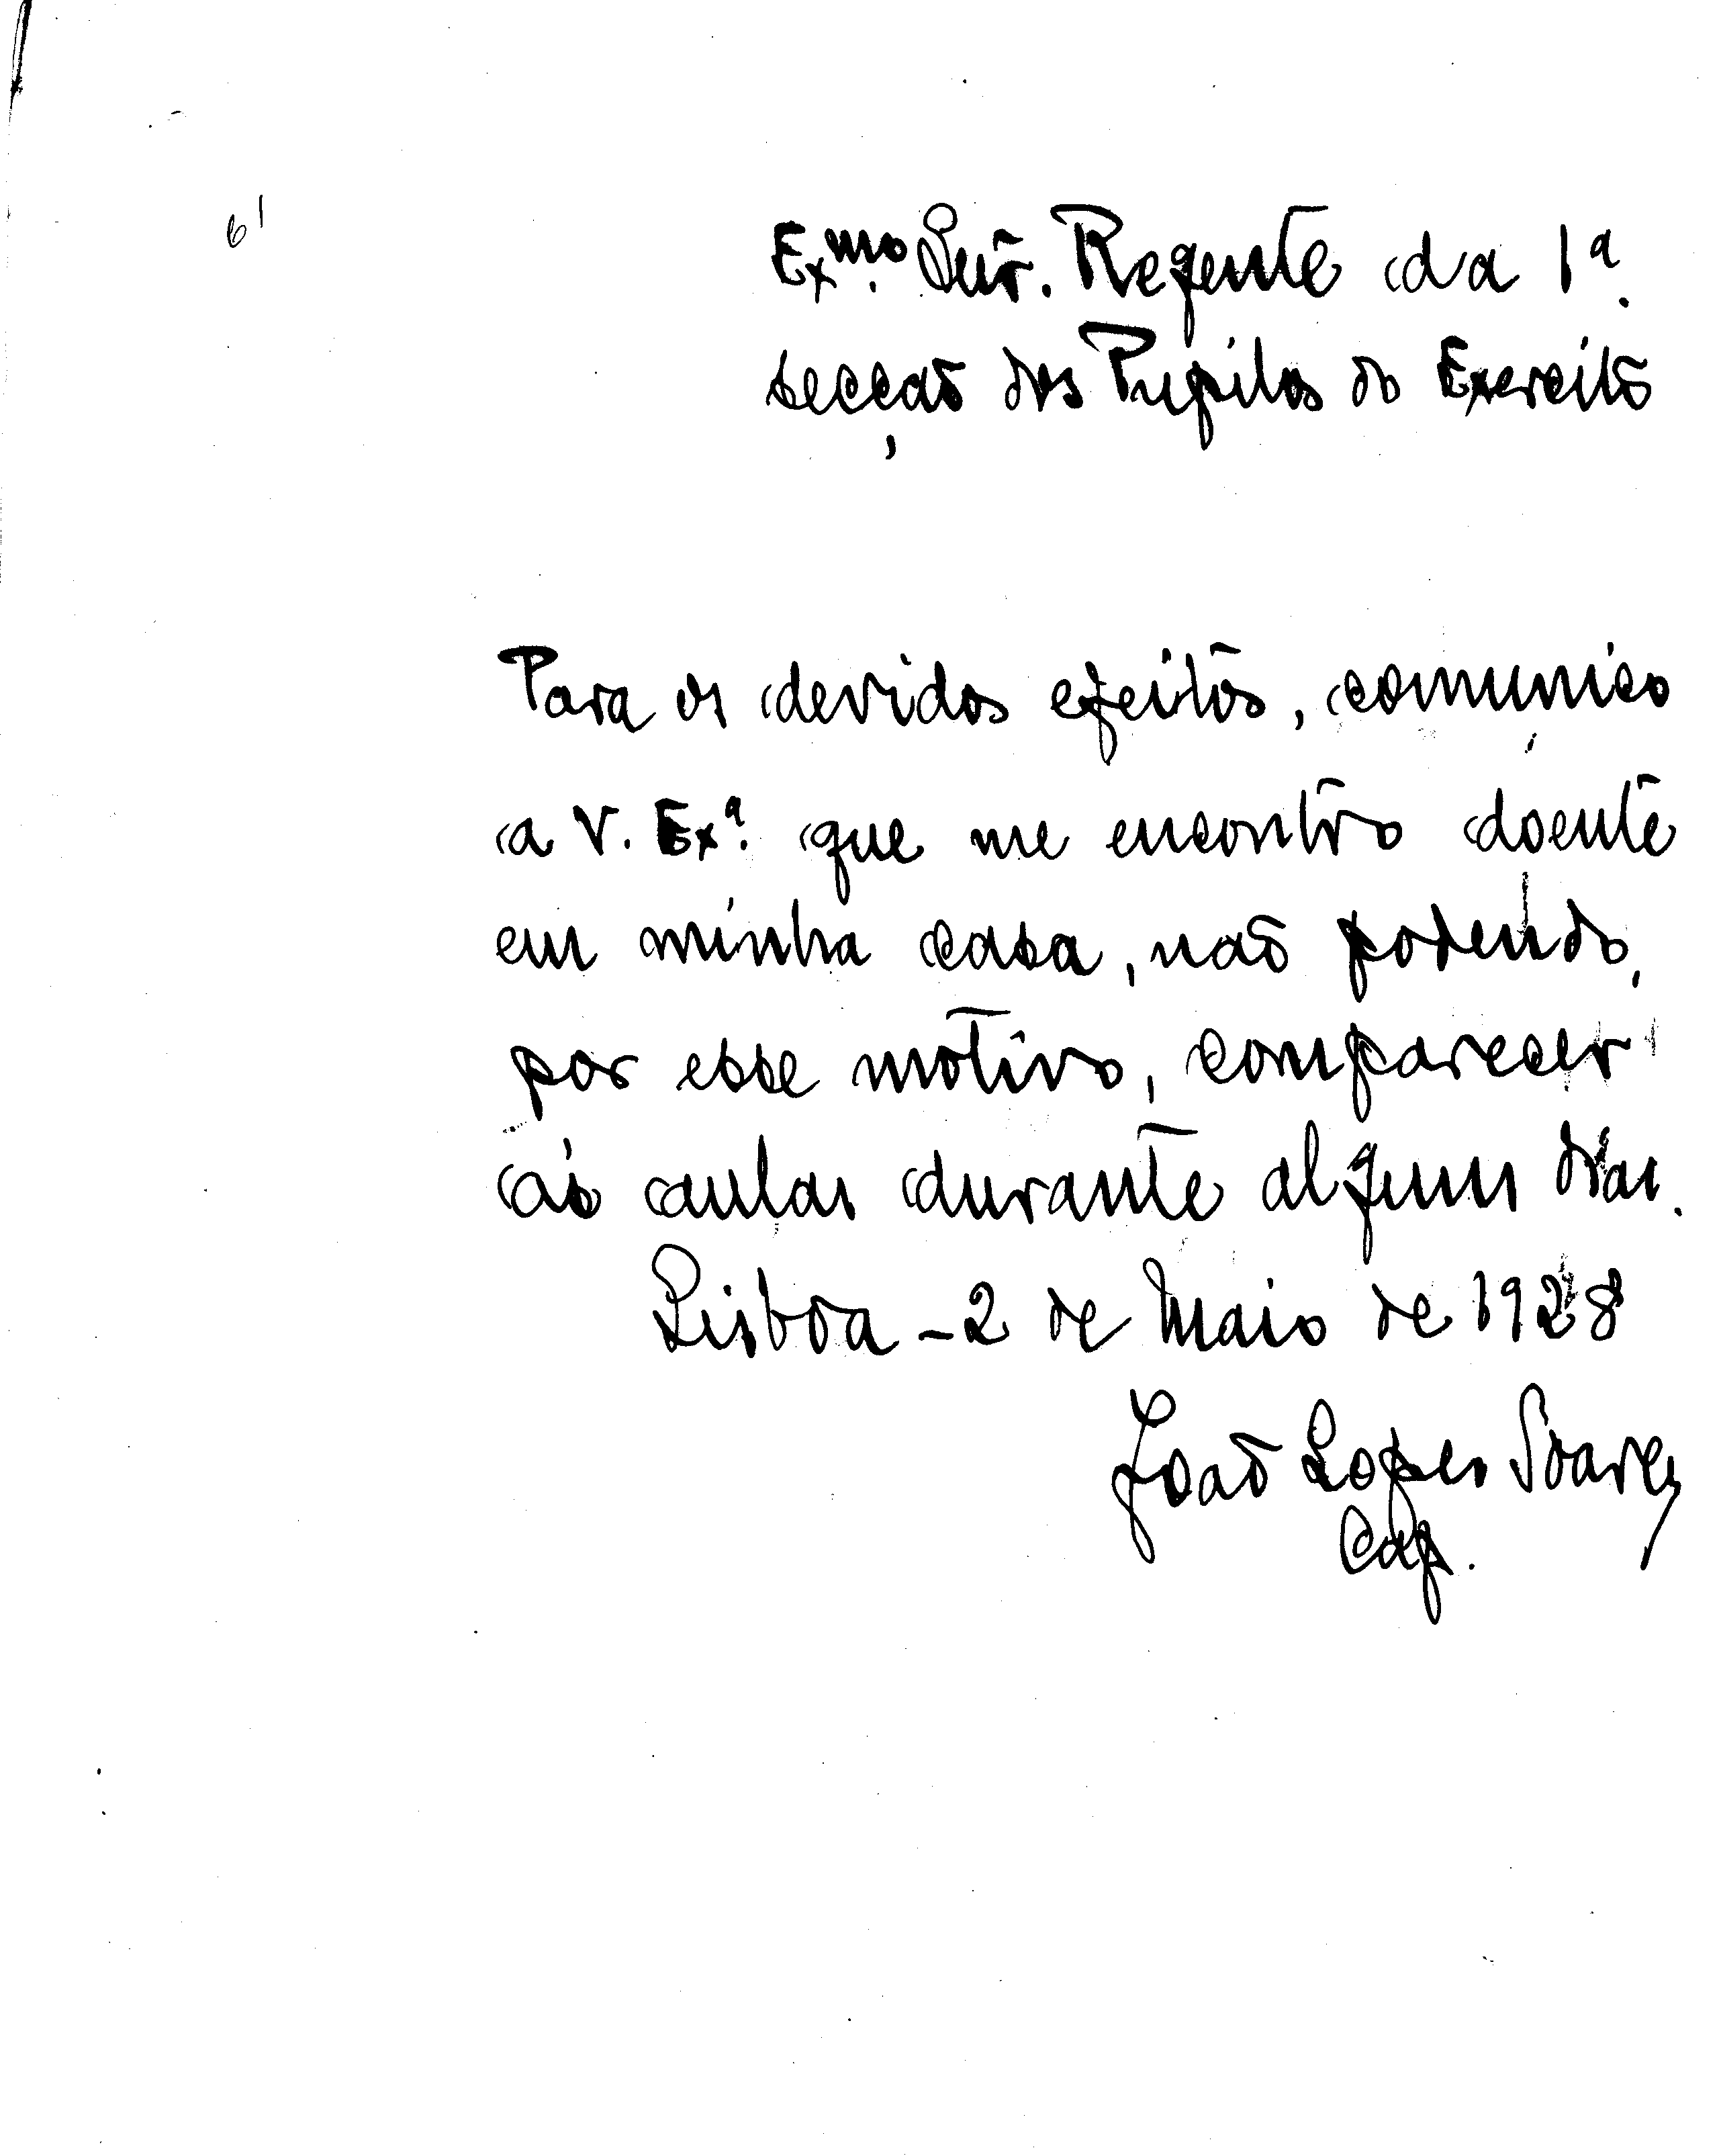 61
Exmo. Snr. Regente da 1ª.
secção dos Pupilos do Exercito
Para os devidos efeitos, comunico
a V. Exª. que me encontro doente
em minha casa, não podendo,
por esse motivo, comparecer
ás aulas durante alguns dias.
Lisboa - 2 de Maio de 1928
João Lopes Soares
Cap.